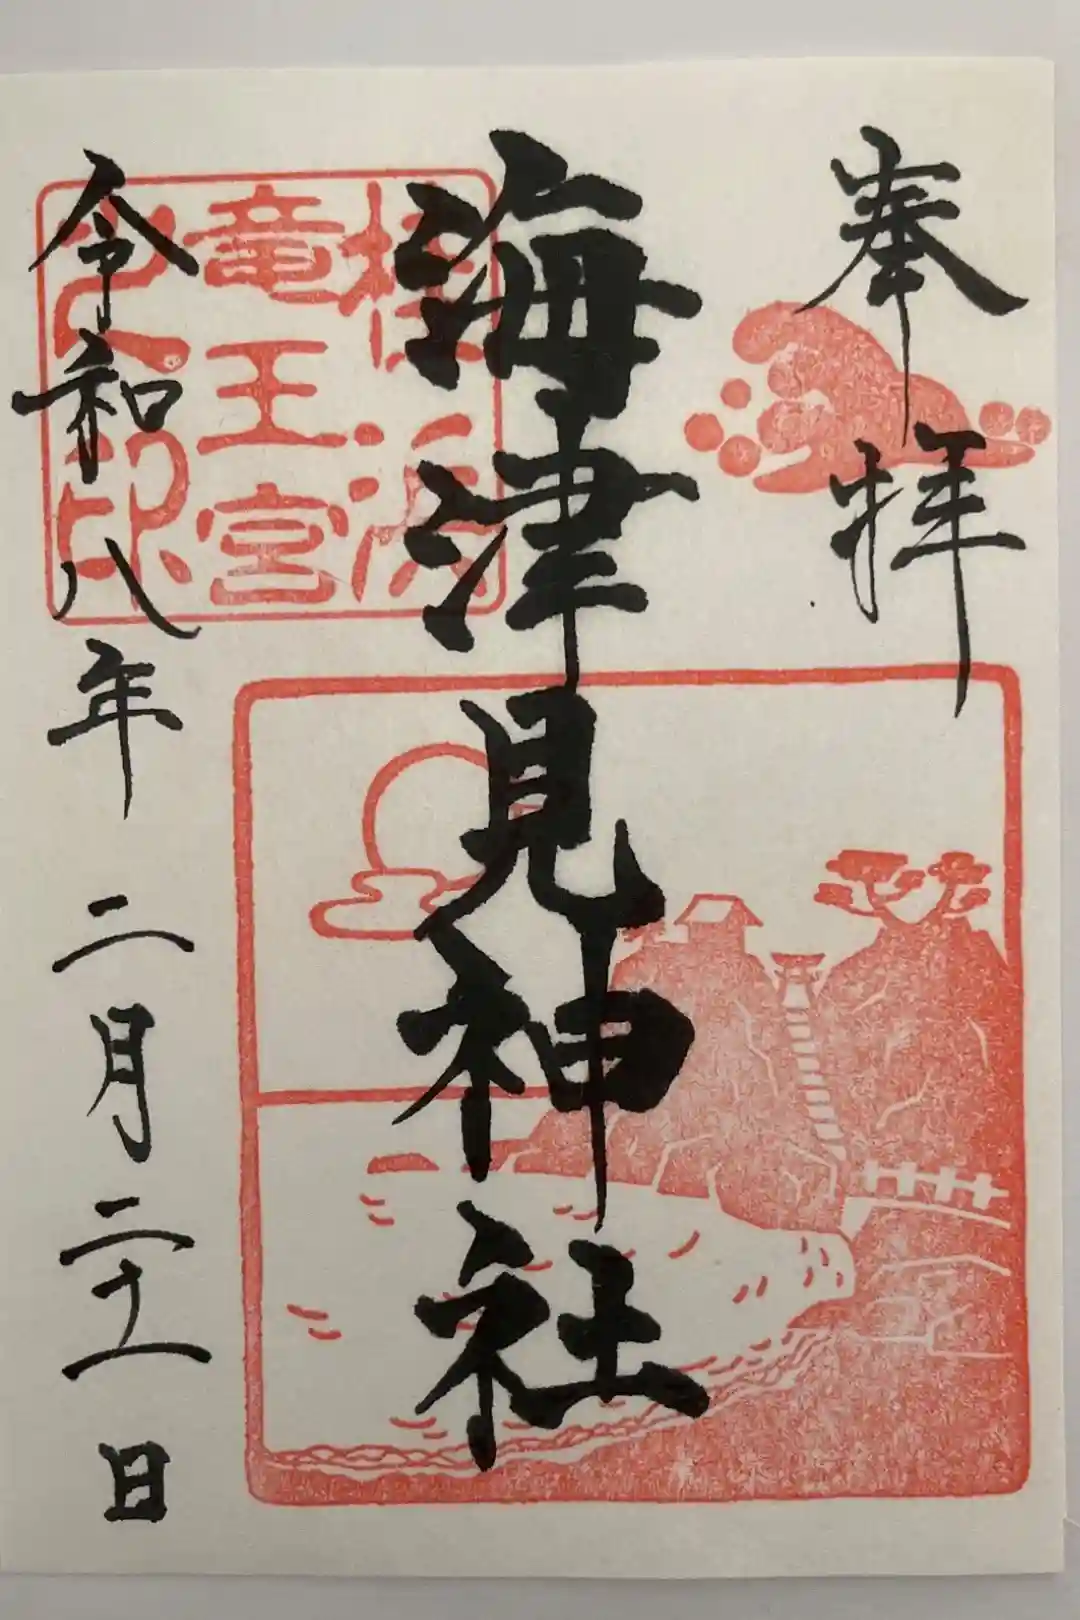 奉拝
海津見神社
桂浜
竜王宮
之印
令和八年 二月二十一日